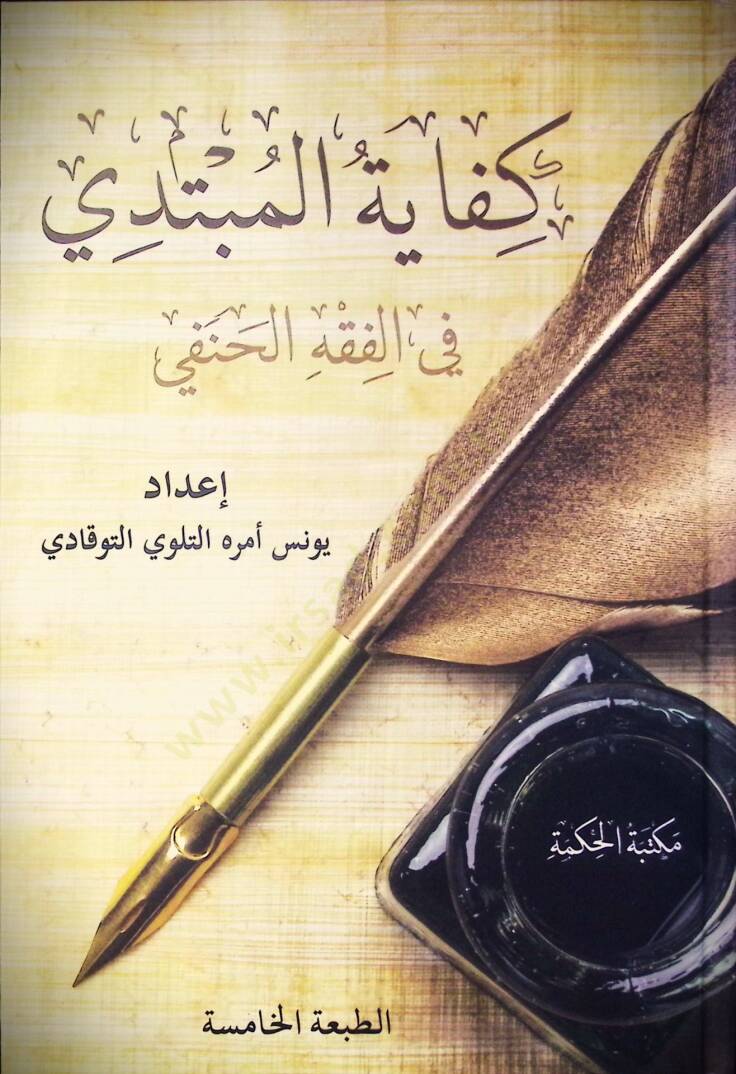 كِفايةُ المُبْتَدِي
في الفِقْهِ الحَنَفي
إعداد
يونس أمره التلوي التوقادي
مَكتبَةُ الحِكمَةِ
الطبعة الخامسة